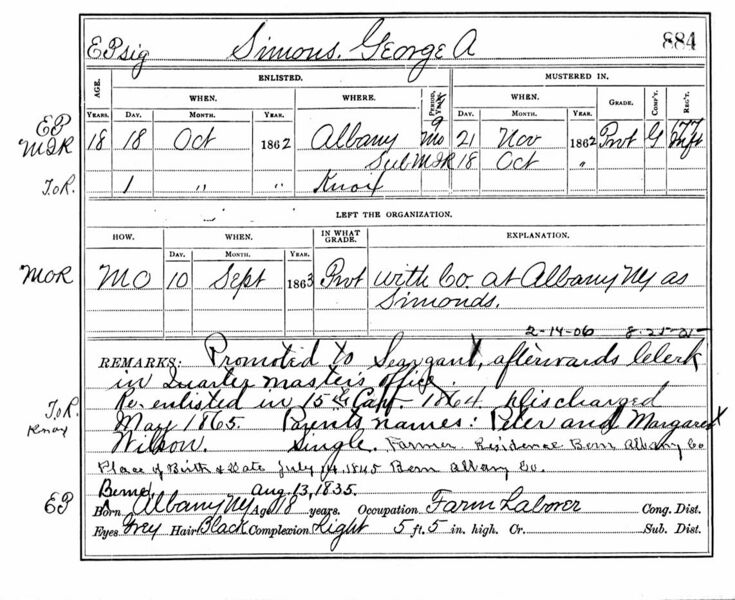 EPsig Simons. George A 884
AGE. ENLISTED. MUSTERED IN.
WHEN. WHERE. PERIOD, YEARS. WHEN. GRADE. COMP'Y. REG'T.
YEARS. DAY. MONTH. YEAR. DAY. MONTH. YEAR.
EP 18 18 Oct 1862 Albany 9 Mo 21 Nov 1862 Pvt G 177 Inft
MIR Sub MIR 18 Oct "
T.o.R. 1 " " Knox
LEFT THE ORGANIZATION.
HOW. WHEN. IN WHAT GRADE. EXPLANATION.
DAY. MONTH. YEAR.
MOR MO 10 Sept 1863 Pvt with Co. at Albany Ny as
Simonds.
2-14-06 8-25-25
REMARKS: Promoted to Seargant, afterwards Clerk
in Quarter master's office.
T.o.R. Re-enlisted in 15th 1864 Discharged
Knox May 1865. Parents names: Peter and Margaret
Wilson. Single. Farmer Residence Bern Albany Co
Place of Birth & Date July 14. 1845 Bern Albany Co.
Aug. 13, 1835.
EP Born Albany Ny Age 18 years. Occupation Farm Laborer Cong. Dist.
Eyes Grey Hair Black Complexion Light 5 ft. 5 in. high. Cr. Sub. Dist.